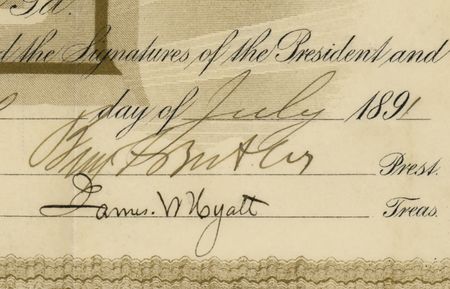 Pa.
d the Signatures of the President and
day of July 1891
Benj F Butler Prest.
James. W Hyatt Treas.